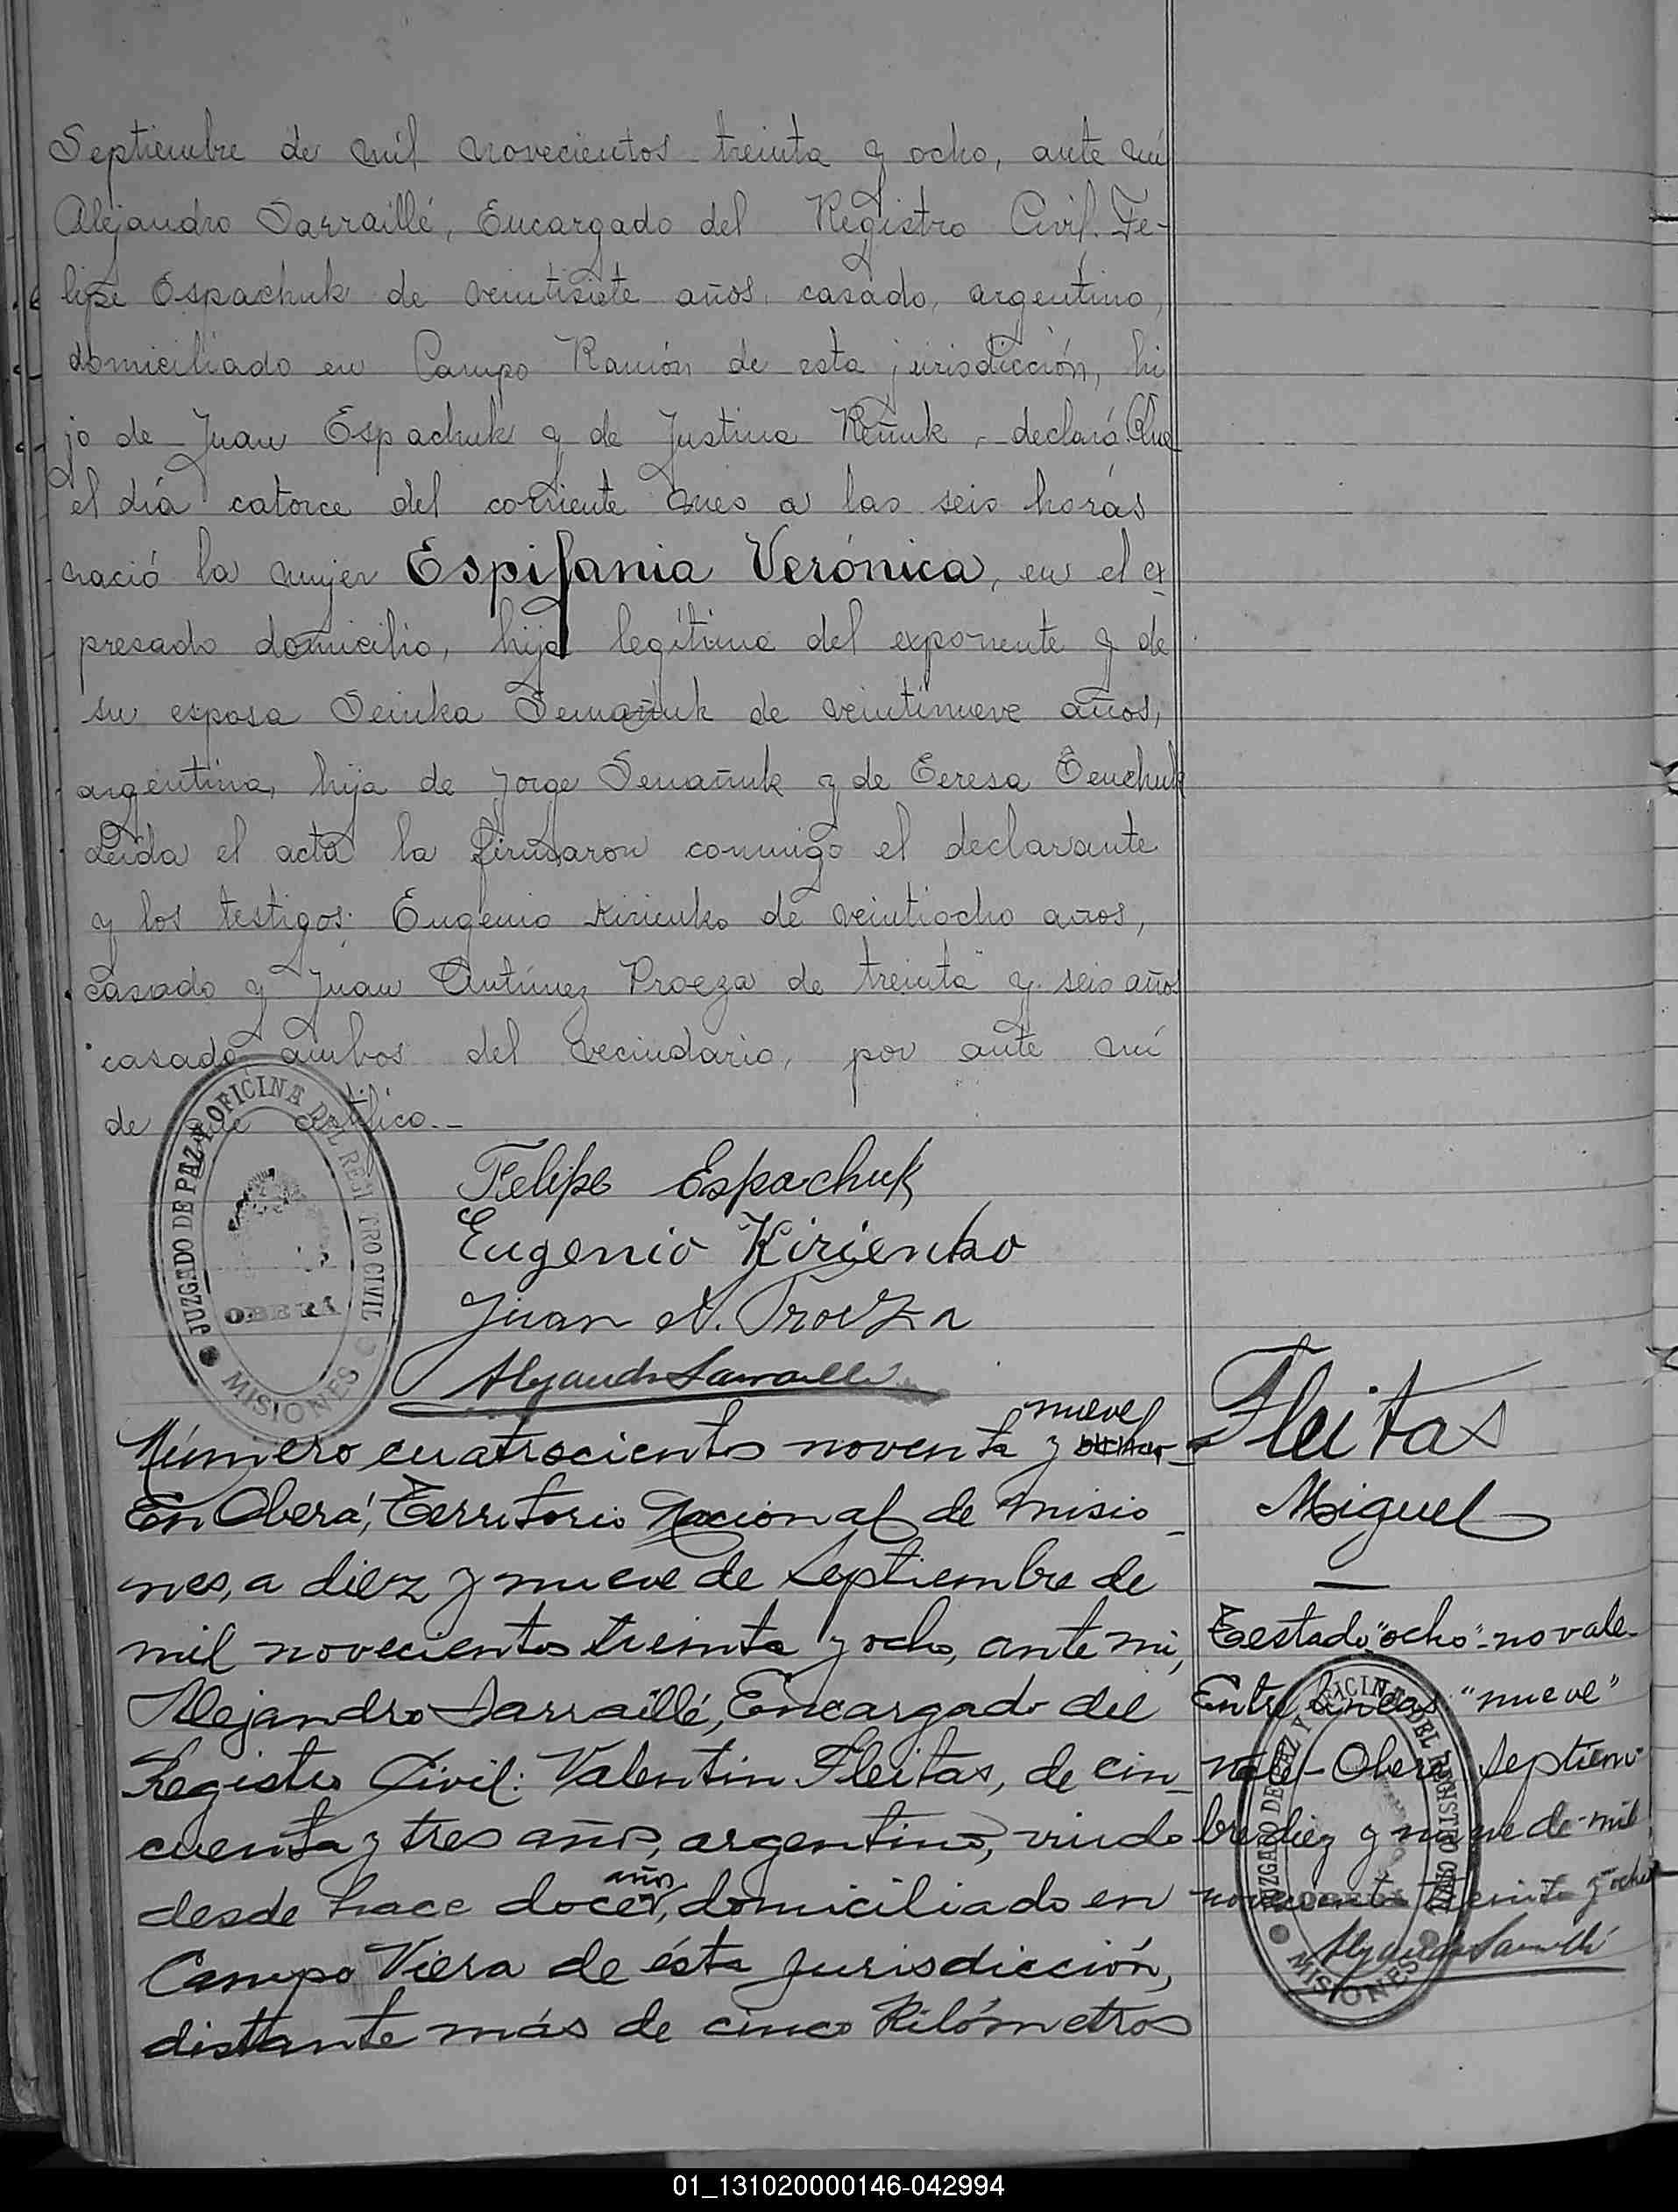 Septiembre de mil novecientos treinta y ocho, ante mí
Alejandro Sarraillé, Encargado del Registro Civil. Fe-
lipe Espachuk de veintisiete años, casado, argentino,
domiciliado en Campo Ramón de esta jurisdicción, hi
jo de Juan Espachuk y de Justina Reñuk, declaró: Que
el día catorce del corriente mes a las seis horas
nació la mujer Espifania Verónica, en el ex
presado domicilio, hija legítima del exponente y de
su esposa Seinka Semañuk de veintinueve años,
argentina, hija de Jorge Semañuk y de Teresa Tenchuk
Leída el acta la firmaron conmigo el declarante
y los testigos: Eugenio Kirienko de veintiocho años,
casado y Juan Antúnez Proeza de treinta y seis años
casado ambos del vecindario, por ante mí
de que certifico.-
JUZGADO DE PAZ Y OFICINA DEL REGISTRO CIVIL
OBERA
MISIONES
Felipe Espachuk
Eugenio Kirienko
Juan A. Proeza
Alejandro Sarraillé
nueve
Número cuatrocientos noventa y ocho-
En Oberá, Territorio Nacional de Misio-
nes, a diez y nueve de Septiembre de
mil novecientos treinta y ocho, ante mi,
Alejandro Sarraillé, Encargado del
Registro Civil: Valentin Fleitas, de cin-
cuenta y tres años, argentino, viudo
desde hace doce años, domiciliado en
Campo Viera de ésta jurisdicción,
distante más de cinco Kilómetros
Fleitas
Miguel
Testado "ocho"-no vale-
Entre lineas "nueve"
vale-Oberá Septiem-
bre diez y nueve de mil
novecientos treinta y ocho
Alejandro Sarraillé
JUZGADO DE PAZ Y OFICINA DEL REGISTRO CIVIL
OBERA
MISIONES
01_131020000146-042994